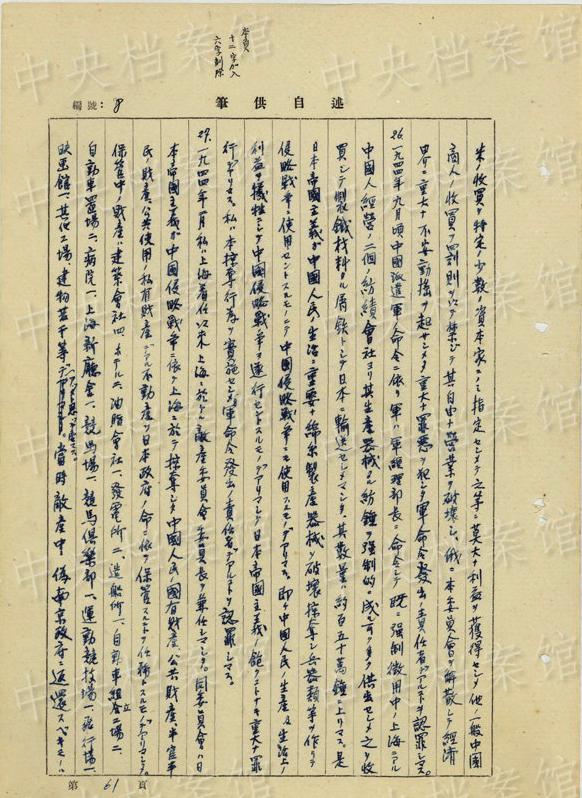 本頁
十二字加入
六字削除
編號：8
述自供筆
米ノ收買ヲ特定ノ少数ノ資本家ニノミ指定セシメテ之等ニ莫大ナ利益ヲ獲得セシメ他ノ一般中国
商人ノ收買ヲ罰則ヲ以テ禁ジテ其自由ナ営業ヲ破壊シ、俄ニ本委員會ヲ解散シテ経済
界ニ重大ナ不安動揺ヲ起サシメタ重大ナ罪悪ヲ犯シタ軍命令発出ノ責任者デアルコトヲ認罪シマス。
26.一九四四年九月頃中国派遣軍ノ命令ニ依リ軍ハ軍経理部長ニ命令シテ既ニ強制徴用中ノ上海ニアル
中国人経営ノ二個ノ紡績會社ヨリ其生産器械タル紡錘ヲ強制的ニ供出セシメ之ヲ收
買シテ製鐵材料タル屑鉄トシテ日本ニ輸送セシメマシタ。其数量ハ約百五十萬錘ニ上リマス。是
日本帝國主義ガ中國人民ノ生活ニ重要ナ綿糸製産器械ヲ破壊掠奪シ兵器類等ヲ作リテ
侵略戦争ニ使用セントスルモノデ中國侵略戦争ニ使用スルモノデアリマス。即チ中國人民ノ生産及生活上ノ
利益ヲ犠牲ニシテ中國侵略戦争ヲ遂行セントスルモノデアリマシテ日本帝国主義ノ鉋クコトナキ重大ナ罪
行デアリマス。私ハ本掠奪行為ヲ實施セシメタ軍命令発出ノ責任者デアルコトヲ認罪シマス。
27.一九四四年 月私ハ上海着任以来上海ニ於ケル敵産委員會ノ委員長ヲ兼任シマシタ。同委員會ハ日
本帝國主義ガ中國侵略戦争ニ依ケ上海ニ於テ掠奪シタ中國人民ノ國有財産、公共財産、半官半
民ノ財産、公共使用ノ私有財産、不動産ヲ日本政府ノ命ニ依リ保管スルコトヲ任務トスルモノデアリマシタ。
保管中ノ財産ハ建築會社四、ホテル二、油脂會社一、發電所二、造船所一、自動車組立工場二、
自動車置場二、病院一、上海新廳舎一、競馬場一、競馬倶楽部一、運動競技場一、飛行場一、
映画館一、其他工場建物若干等デアリマス。當時敵産中偽南京政府ニ返還スベキモノハ
第 61 頁
中央档案馆